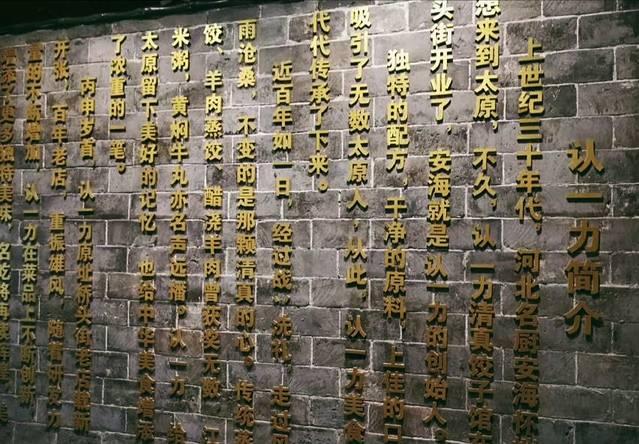 认一力简介
上世纪三十年代，河北名厨安海怀
想来到太原，不久，认一力清真饺子馆
头街开业了，安海就是认一力的创始人。
独特的配方，干净的原料，上佳的口
吸引了无数太原人，从此，认一力美食
代代传承了下来。
近百年如一日，经过战 洗礼，走过
雨沧桑，不变的是那颗清真的心。传统
饺、羊肉蒸饺 醋浇羊肉曾获奖无数
米粥，黄焖牛丸亦名声远播。认一力
太原留下美好的记忆，也给中华美食增
了浓重的一笔。
丙申岁首，认一力原址桥头街
开张，百年老店，重振雄风 随着
不断增加，认一力在菜品上不断创新
更多独特美味，名